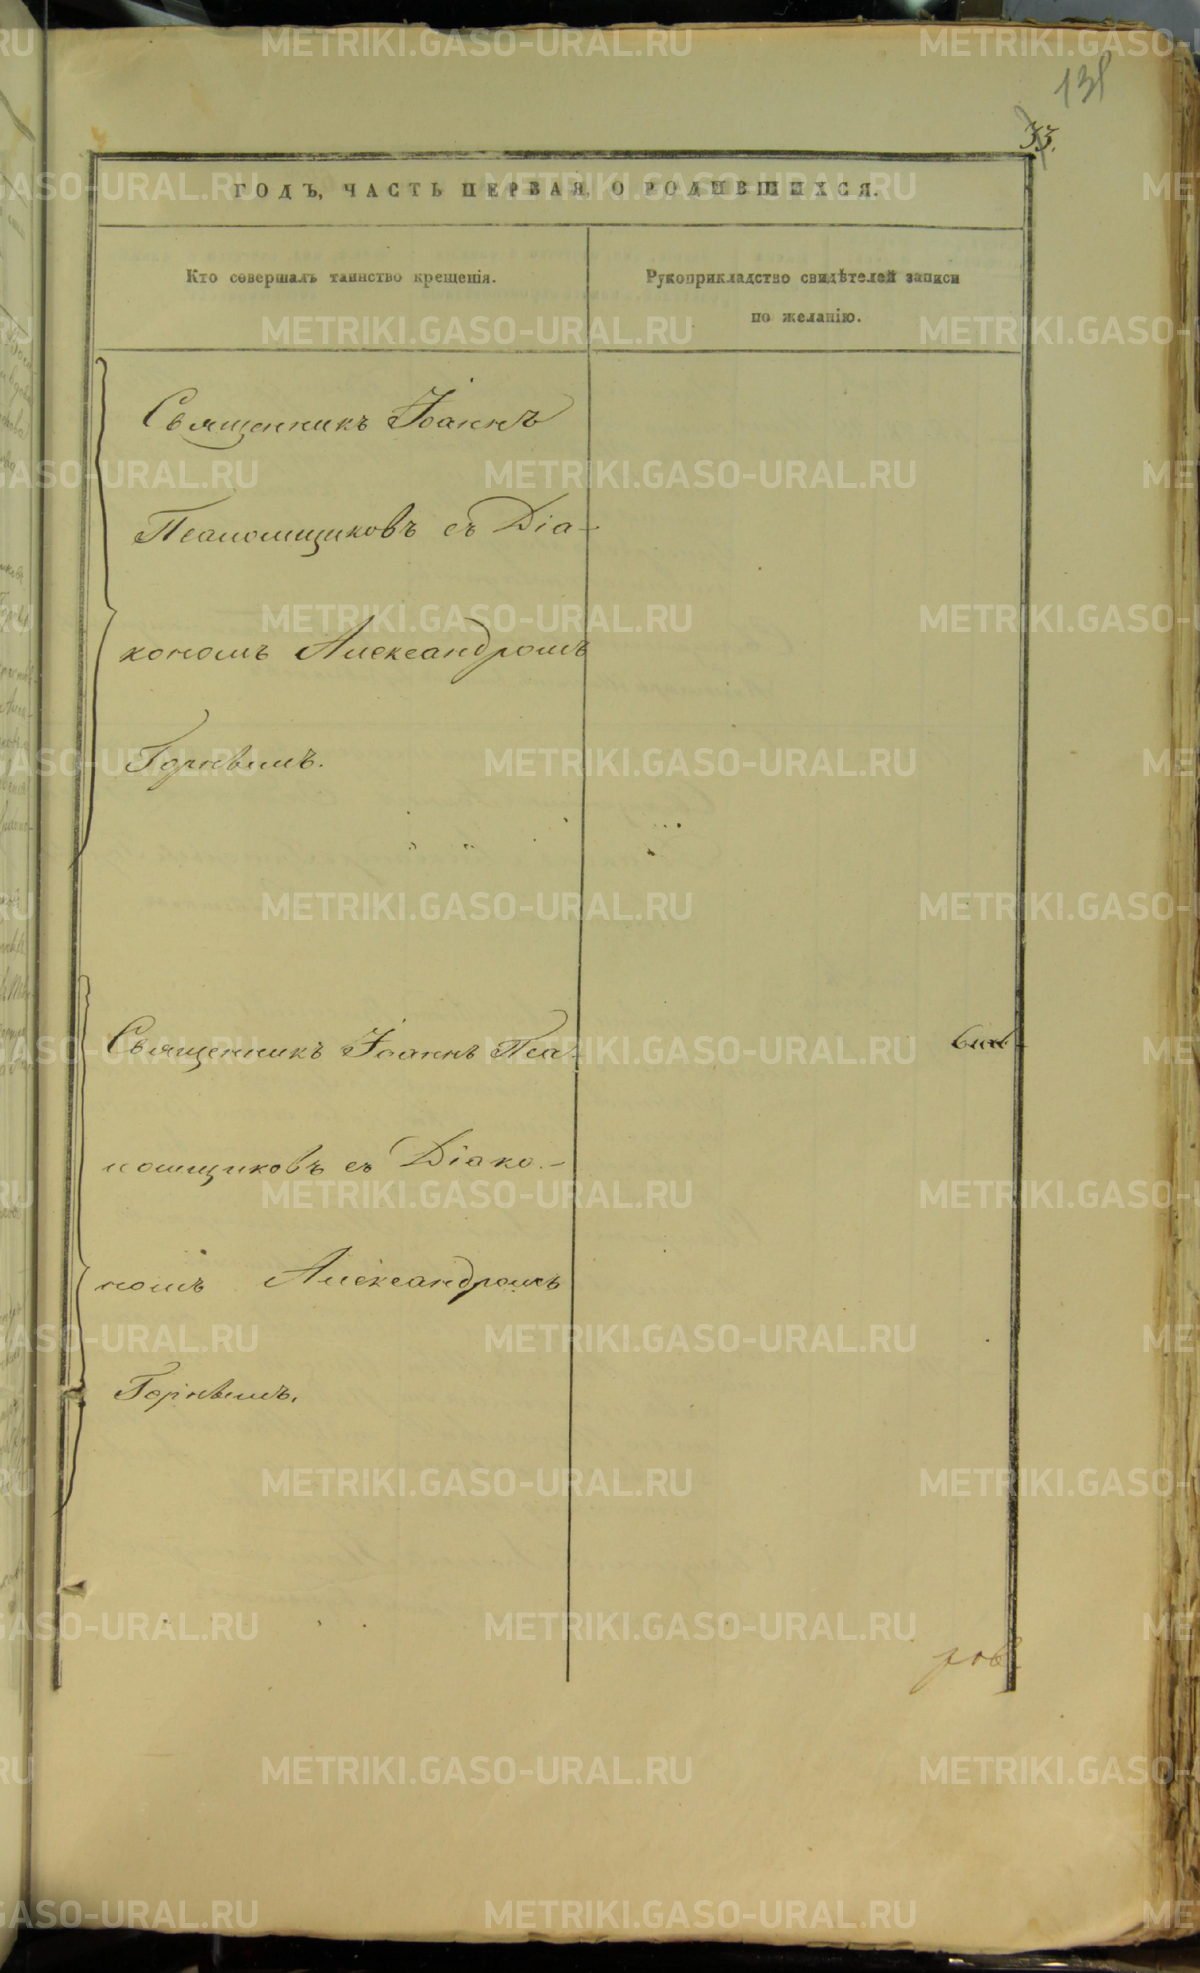 138
33.
ГОДЪ, ЧАСТЬ ПЕРВАЯ, О РОДИВШИХСЯ.
Кто совершалъ таинство крещенія.
Рукоприкладство свидѣтелей записи
по желанію.
Священникъ Іоаннъ
Псаломщиковъ съ Діа-
кономъ Александромъ
Горнѣмъ.
Священникъ Іоаннъ Пса-
ломщиковъ съ Діако-
номъ Александромъ
Горнѣмъ.
METRIKI.GASO-URAL.RU